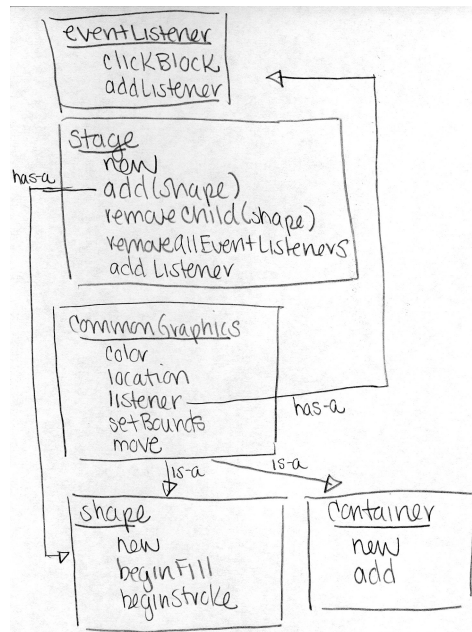 eventListener
clickBlock
addListener
stage
new
has-a
add(shape)
removeChild(shape)
removeAllEventListeners
add Listener
commonGraphics
color
location
listener
has-a
setBounds
move
is-a
is-a
shape
new
beginFill
beginStroke
container
new
add